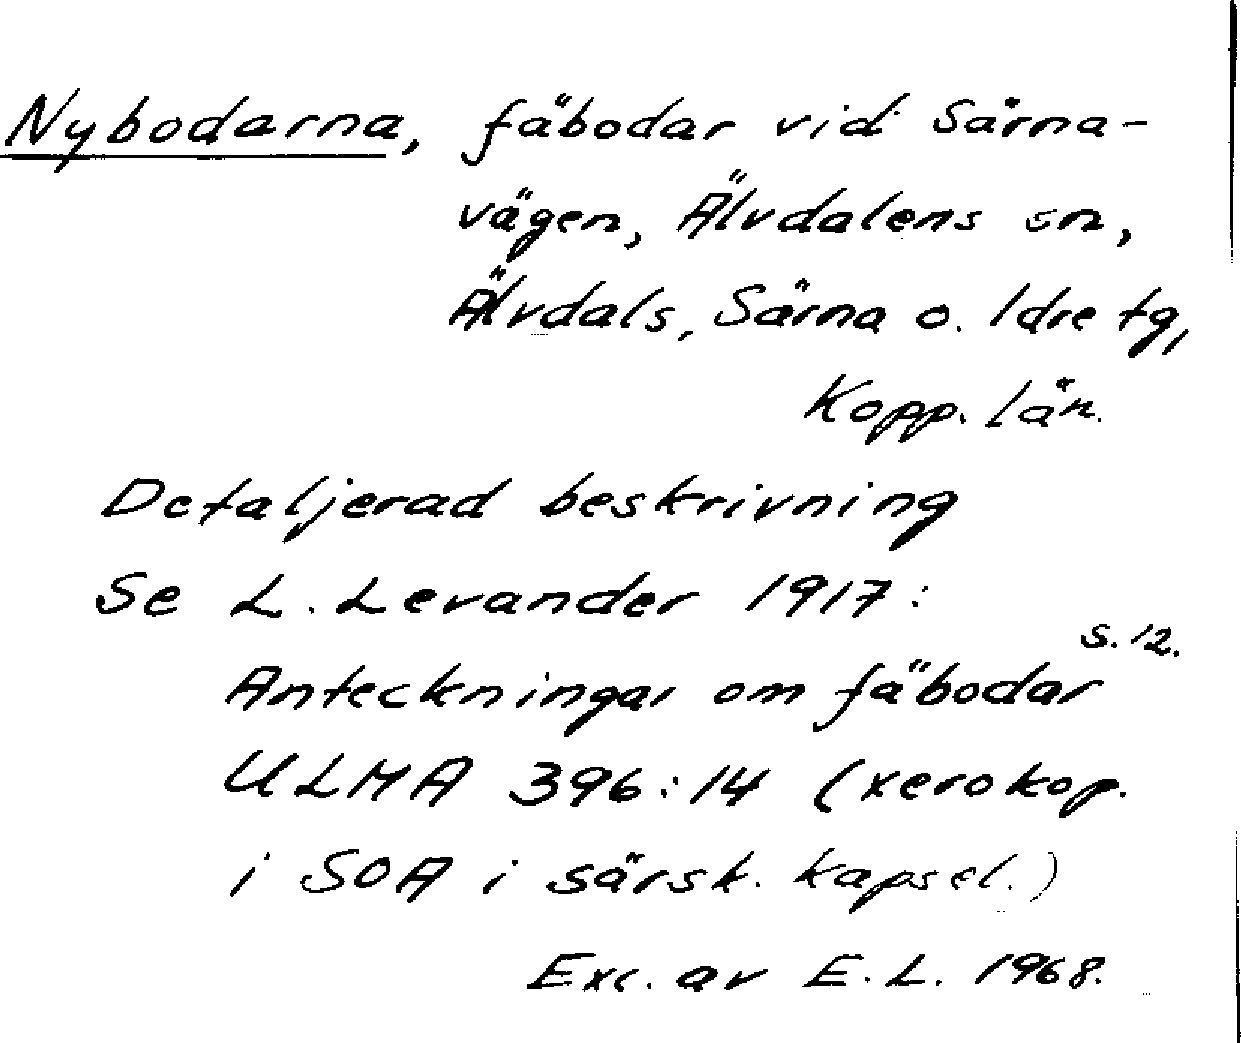 Nybodarna, fäbodar vid Särna-
vägen, Älvdalens sn,
Älvdals, Särna o. Idre tg,
Kopp. län.
Detaljerad beskrivning
Se L. Levander 1917:
s. 12.
Anteckningar om fäbodar
ULMA 396:14 (xerokop.
i SOA i särsk. kapsel.)
Exc. av E. L. 1968.